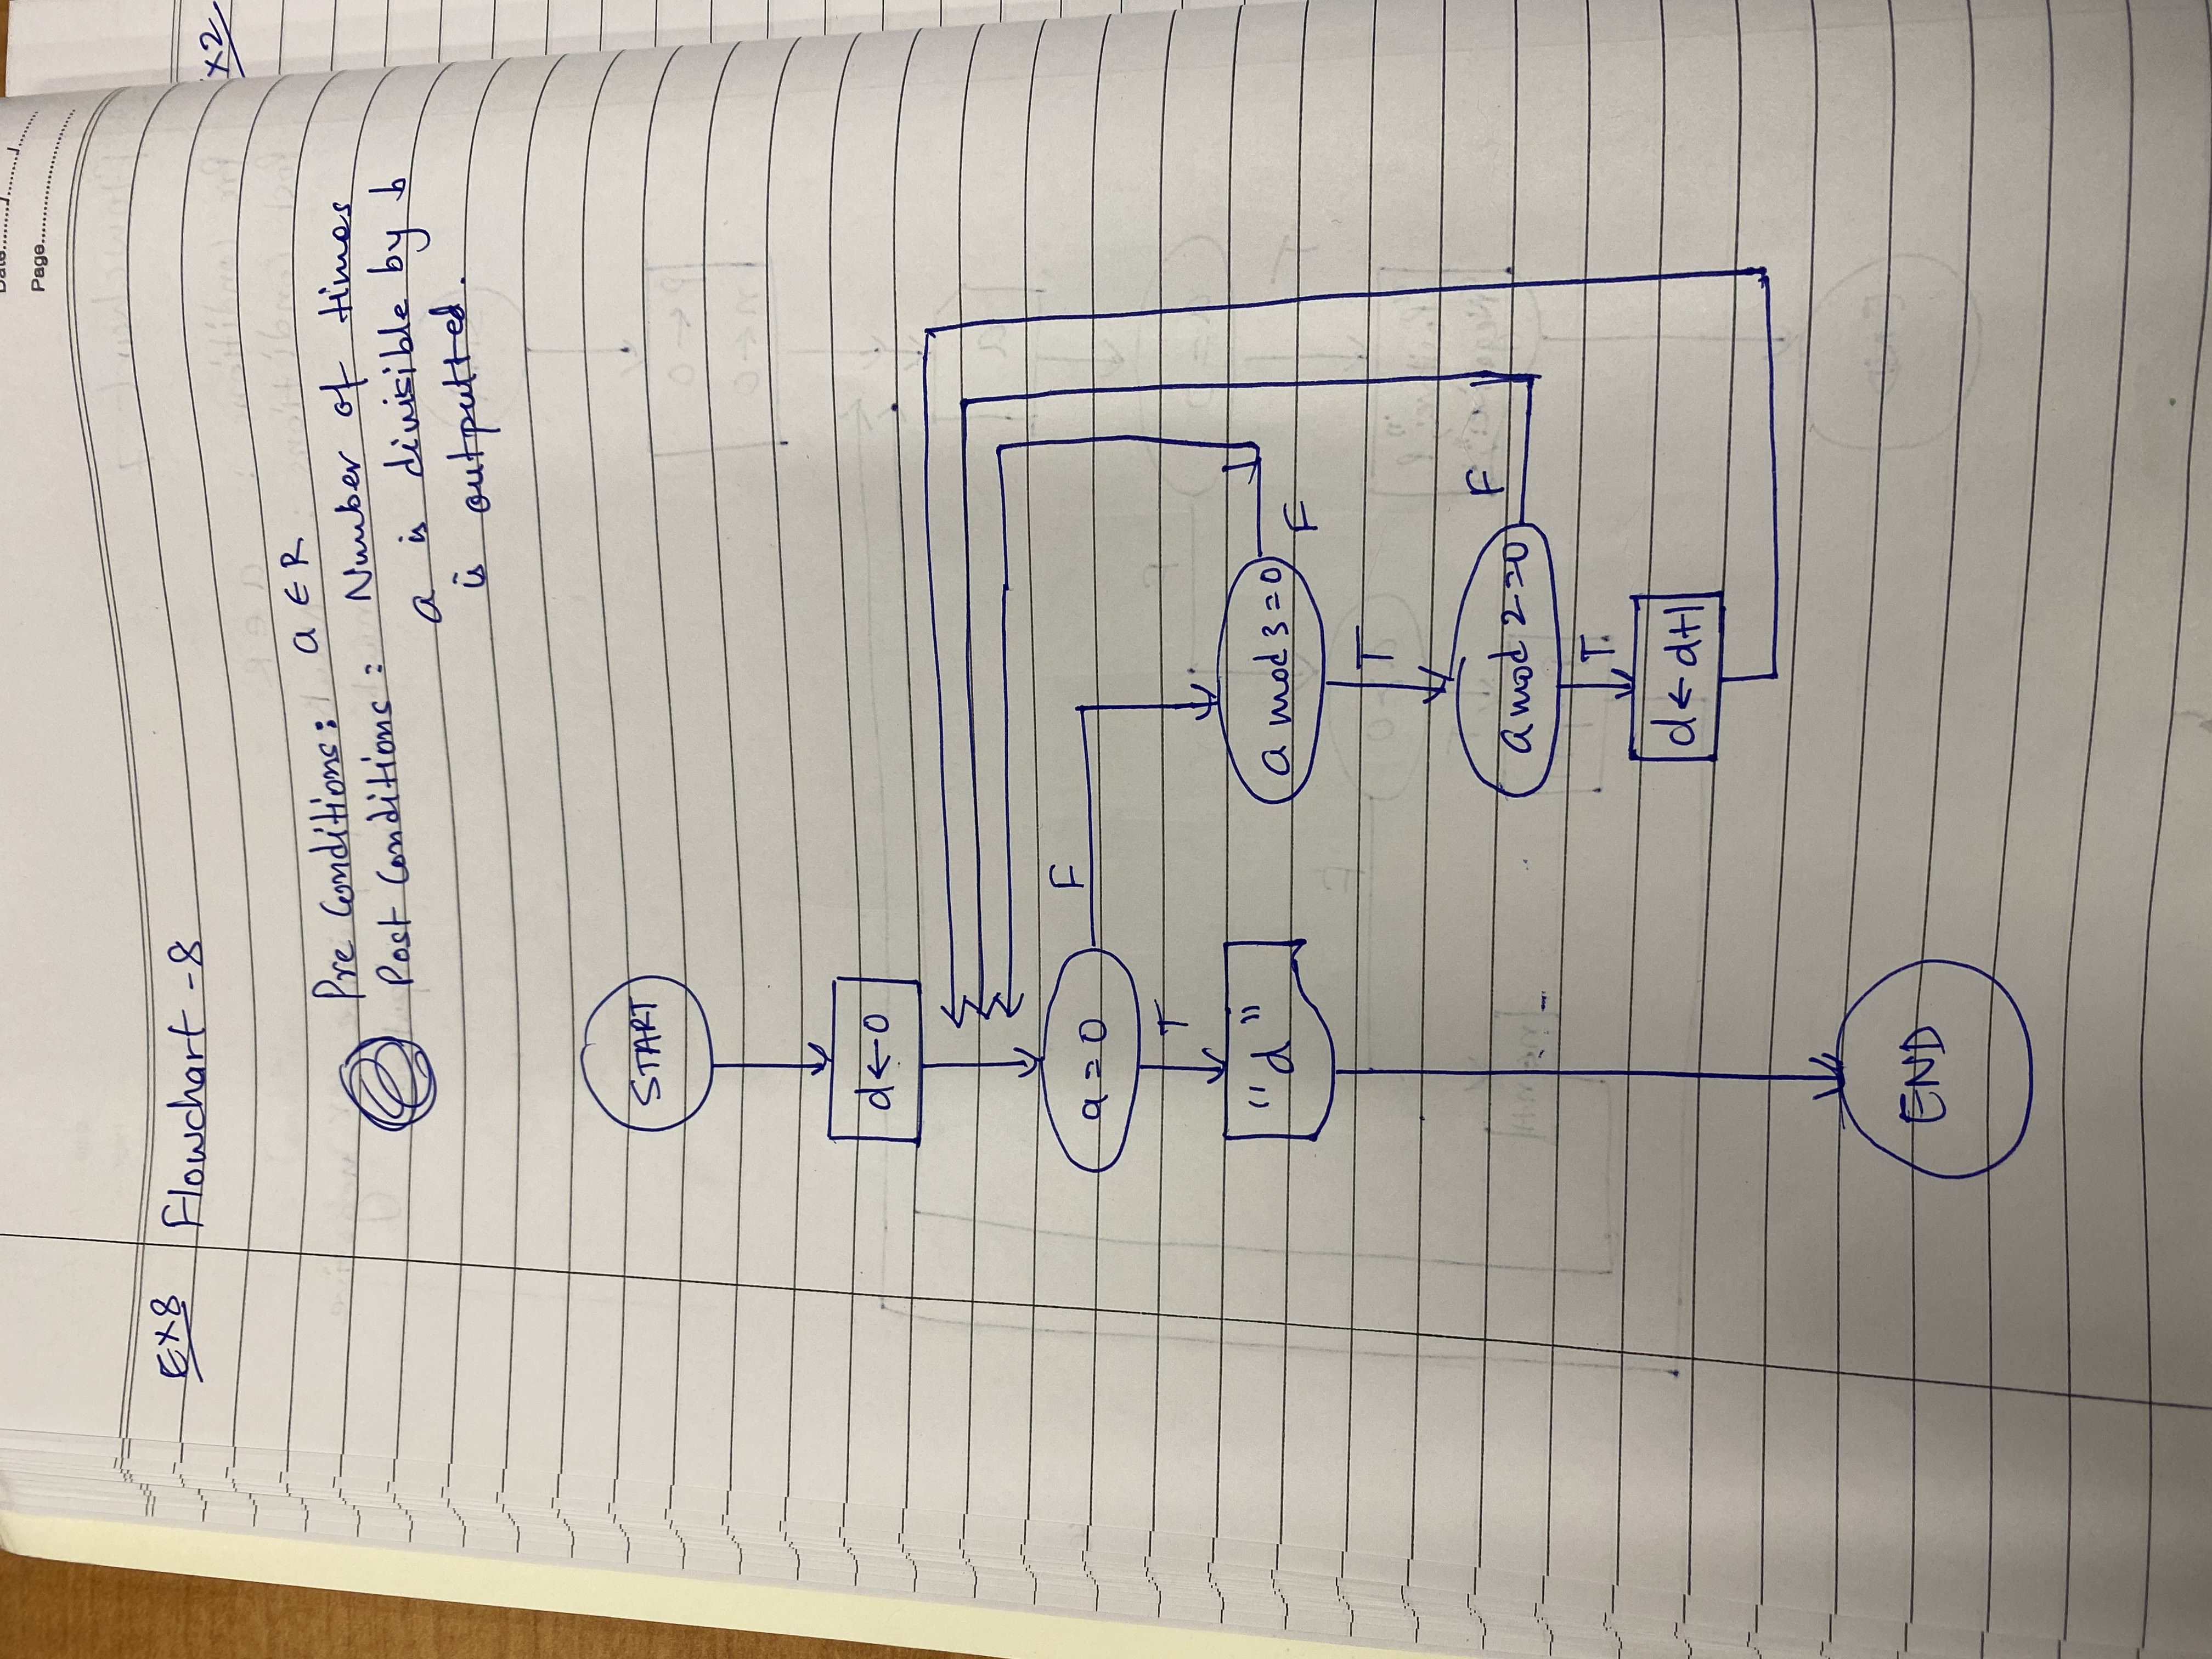 Date......../......../........
Page................................
Ex8 Flowchart - 8
x2
Pre Conditions: a ∈ R
Post Conditions: Number of times
a is divisible by b
is outputted.
START
d ← 0
a = 0
F
T
"d"
a mod 3 = 0
F
T
a mod 2 = 0
F
T
d ← d+1
END